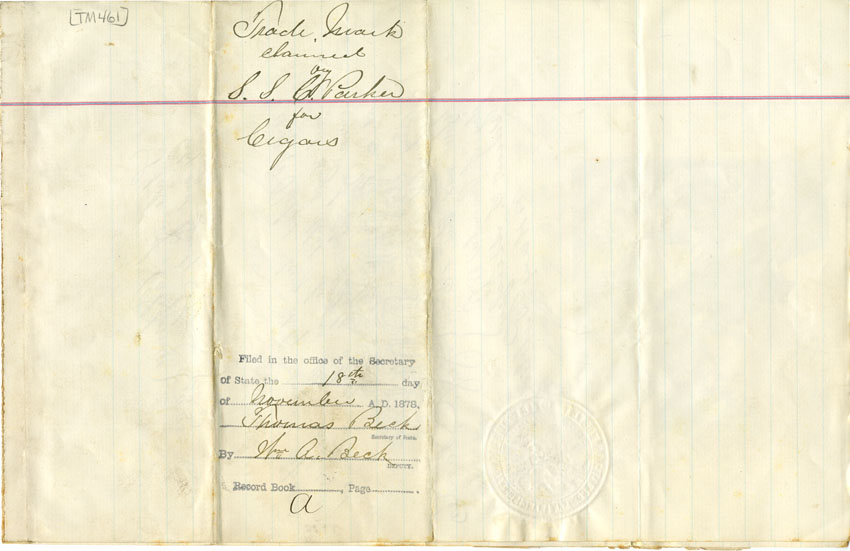 [TM461]
Trade Mark
claimed
by
S. S. C. Parker
for
Cigars
Filed in the office of the Secretary
of State the 18th day
of November A.D. 1878,
Thomas Beck
Secretary of State.
By Wm A. Beck
DEPUTY.
Record Book , Page .
A